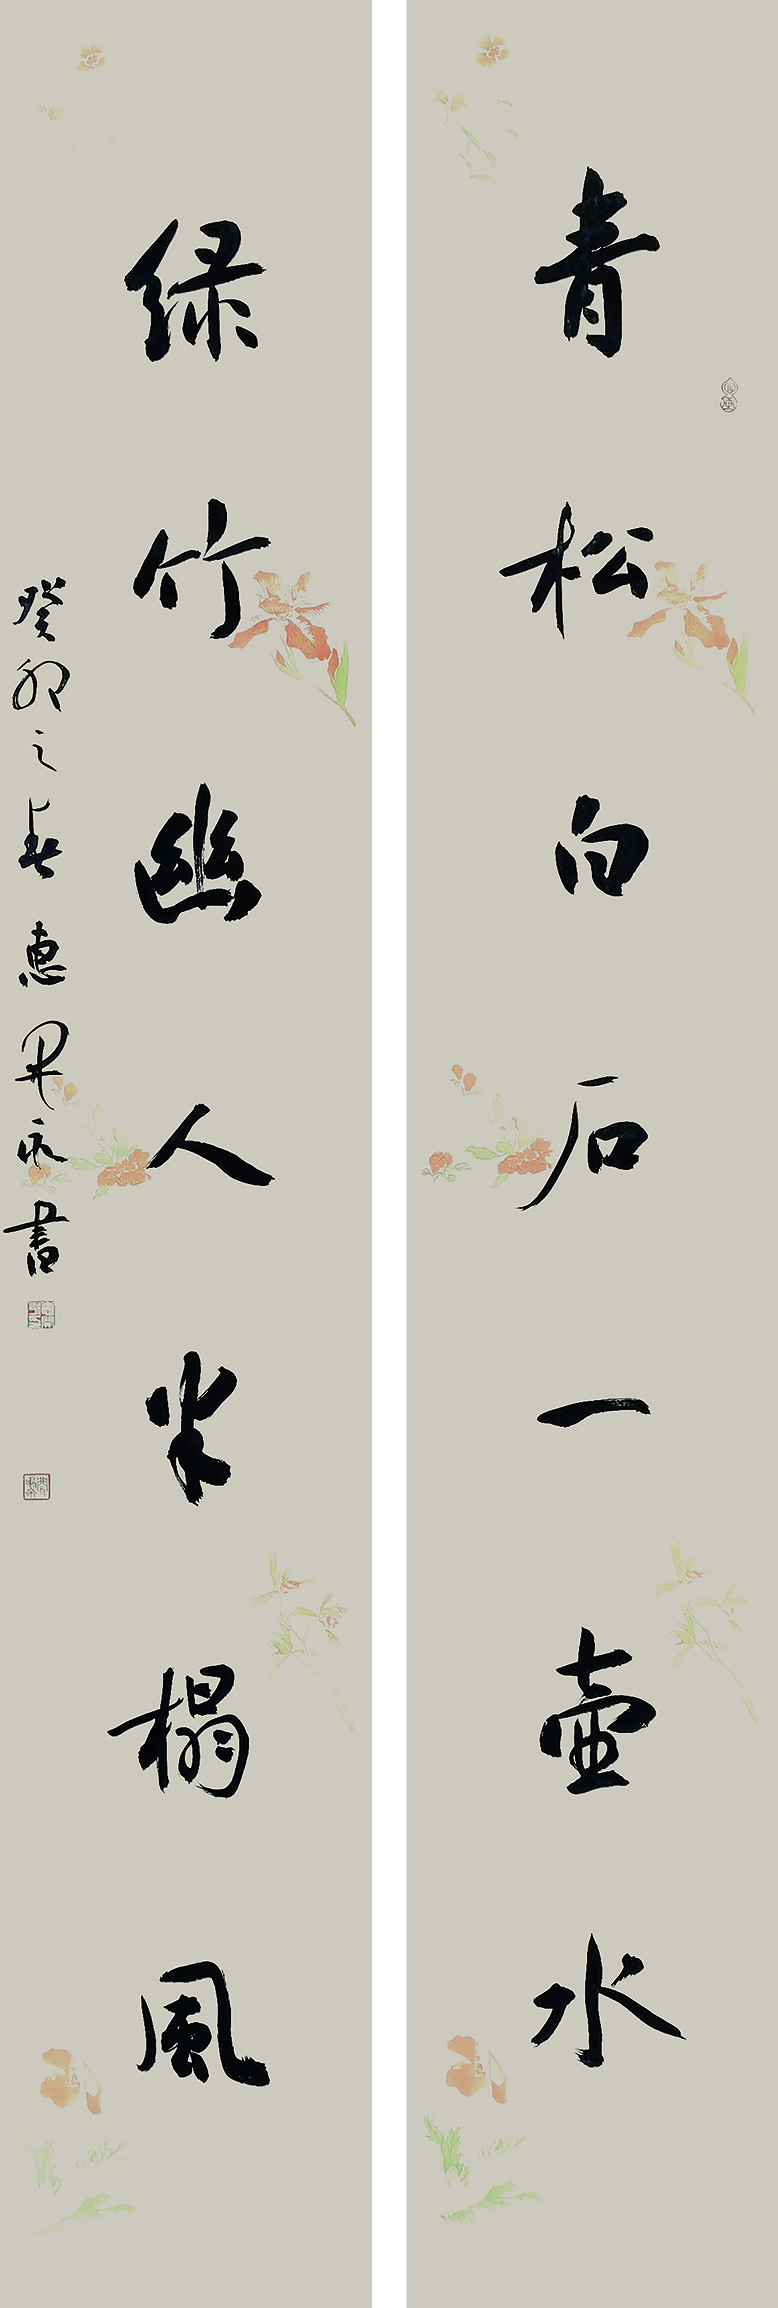 青松白石一壶水
绿竹幽人半榻風
癸卯之春惠开永書